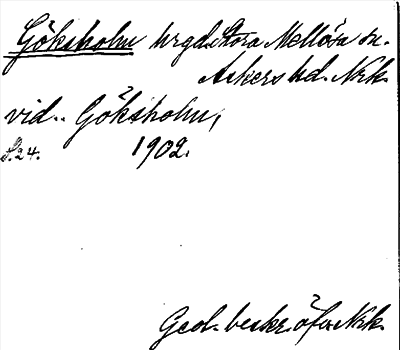 Göksholm hrgd. Stora Mellösa sn.
Askers hd. Nrk.
vid.. Göksholm,
S. 24. 1902.
Geol. beskr. öfv. Nrk.